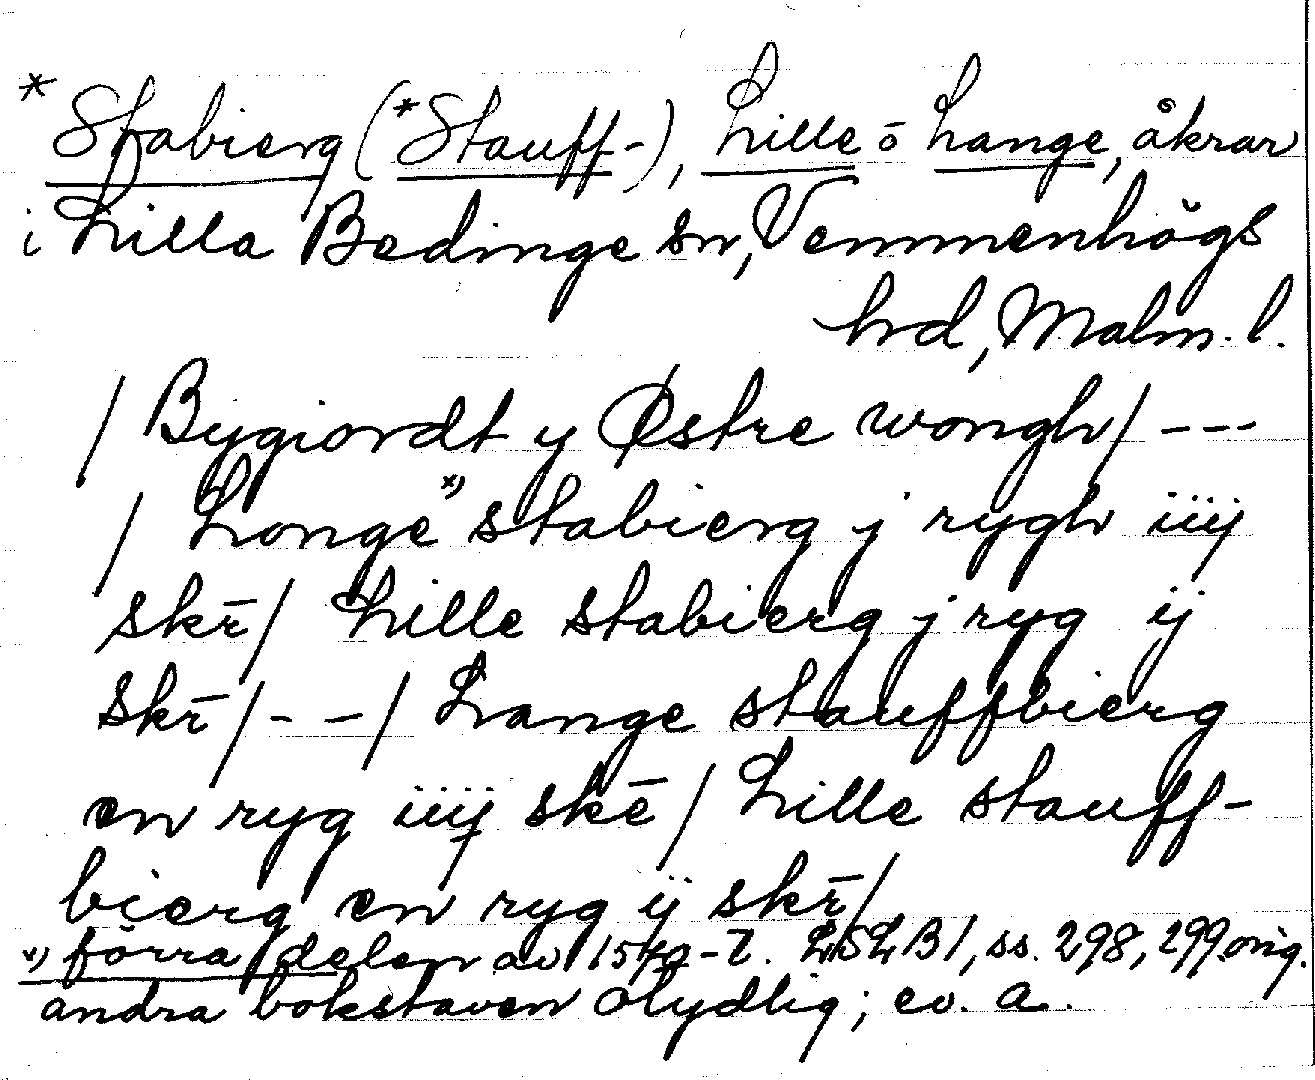 *Stabierg (*Stauff-), Lille o Lange, åkrar
i Lilla Bedinge sn, Vemmenhögs
hd, Malm. l.
/ Bygiordt y Østre wongh / ---
/ Longe *) stabierg j rygh iiij
skē / Lille stabierg j ryg ij
skē / -- / Lange stauffbierg
en ryg iiij skē / Lille stauff-
bierg en ryg ij skē /
förra delen av 15 -t. LSLB 1, ss. 298, 299 orig.
*) andra bokstaven otydlig; ev. a.